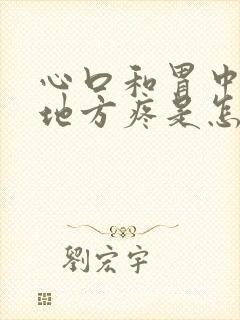 心口和胃中
地方疼是怎
劉宏宇